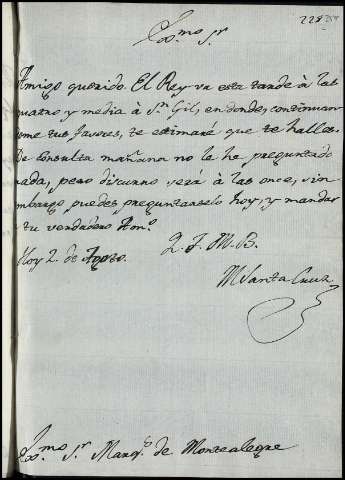 228
Exc.mo S.r
Amigo querido. El Rey va esta tarde à las
quatro y media à S.n Gil, en donde, continuan
dome tus favores, te estimaré que te hallas.
De Consulta mañana no le ha preguntado
nada, pero discurro será à las once, sin
embargo puedes preguntarselo hoy, y mandar
à tu verdadero Am.o
Hoy 2. de Agosto.
Q. T. M. B.
M Santa Cruz
Exc.mo S.r Marq.s de Montealegre